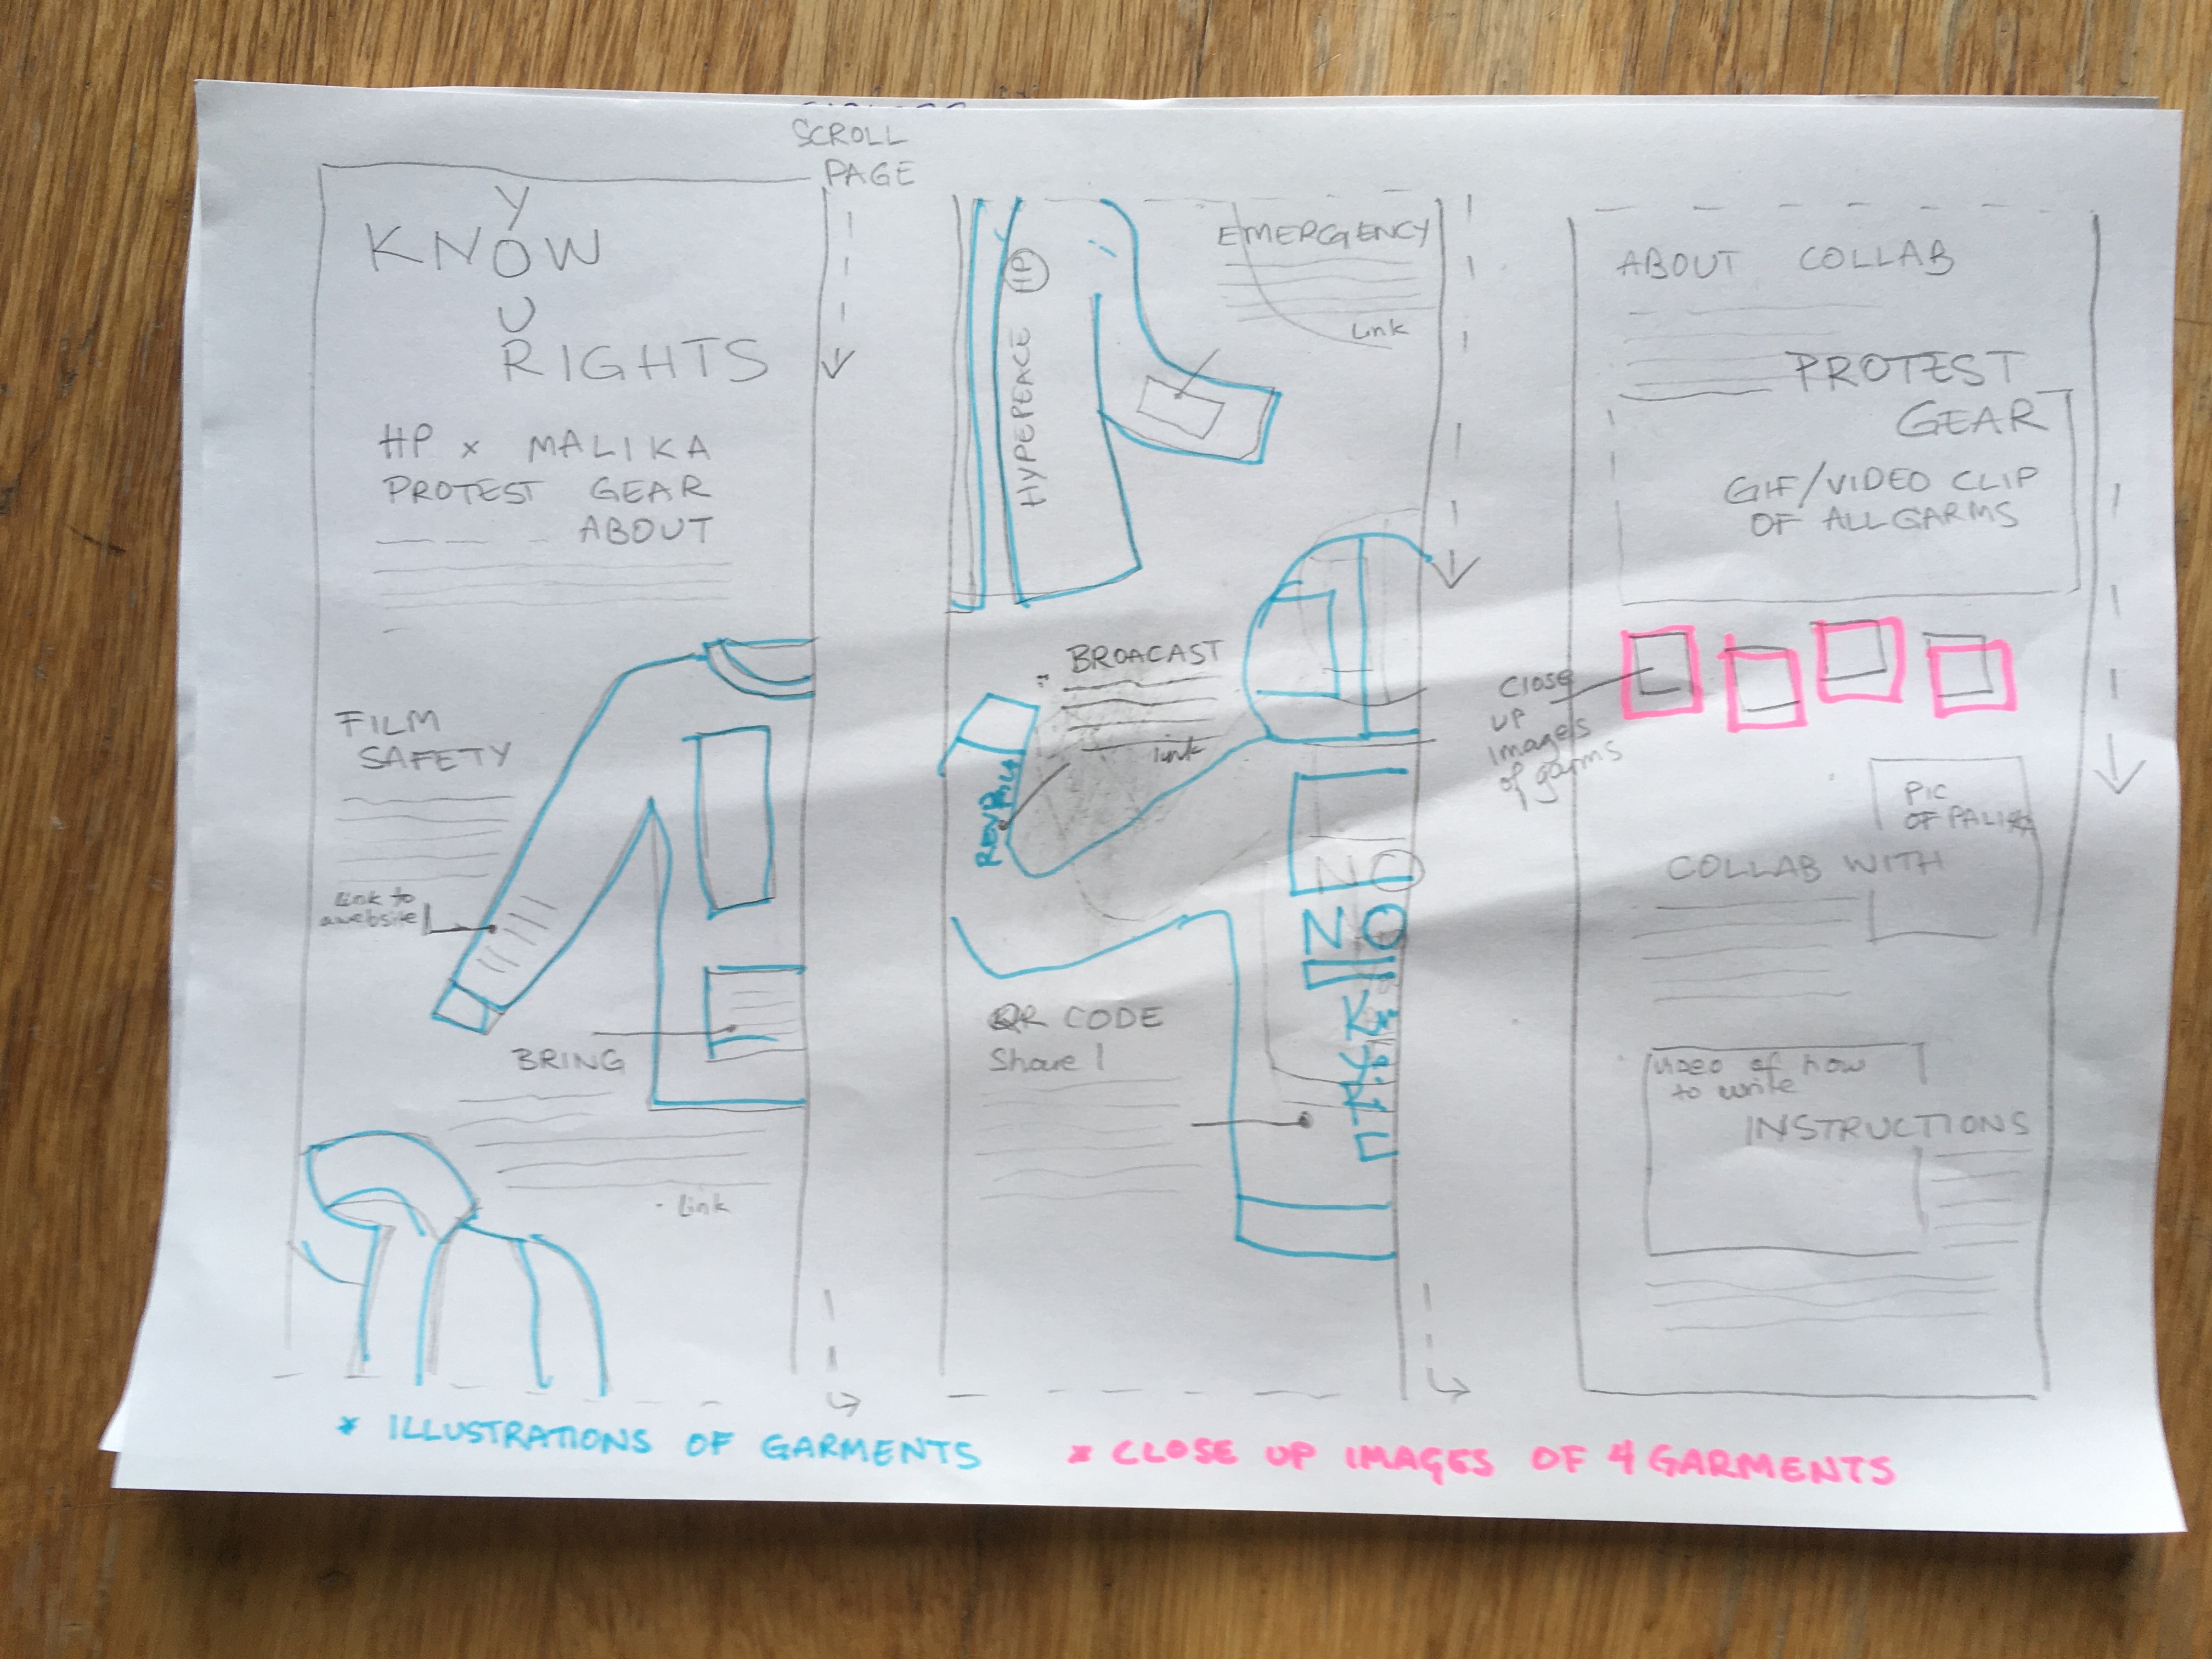 SCROLL
PAGE
Y
KNOW
U
RIGHTS
HP x MALIKA
PROTEST GEAR
ABOUT
FILM
SAFETY
Link to
a website
BRING
- Link
HYPEPEACE HP
EMERGENCY
Link
BROACAST
link
NO
NO
QR CODE
Share
ABOUT COLLAB
PROTEST
GEAR
GIF/VIDEO CLIP
OF ALL GARMS
Close
up
images
of garms
PIC
OF
COLLAB WITH
Video of how
to write
INSTRUCTIONS
* ILLUSTRATIONS OF GARMENTS
* CLOSE UP IMAGES OF 4 GARMENTS